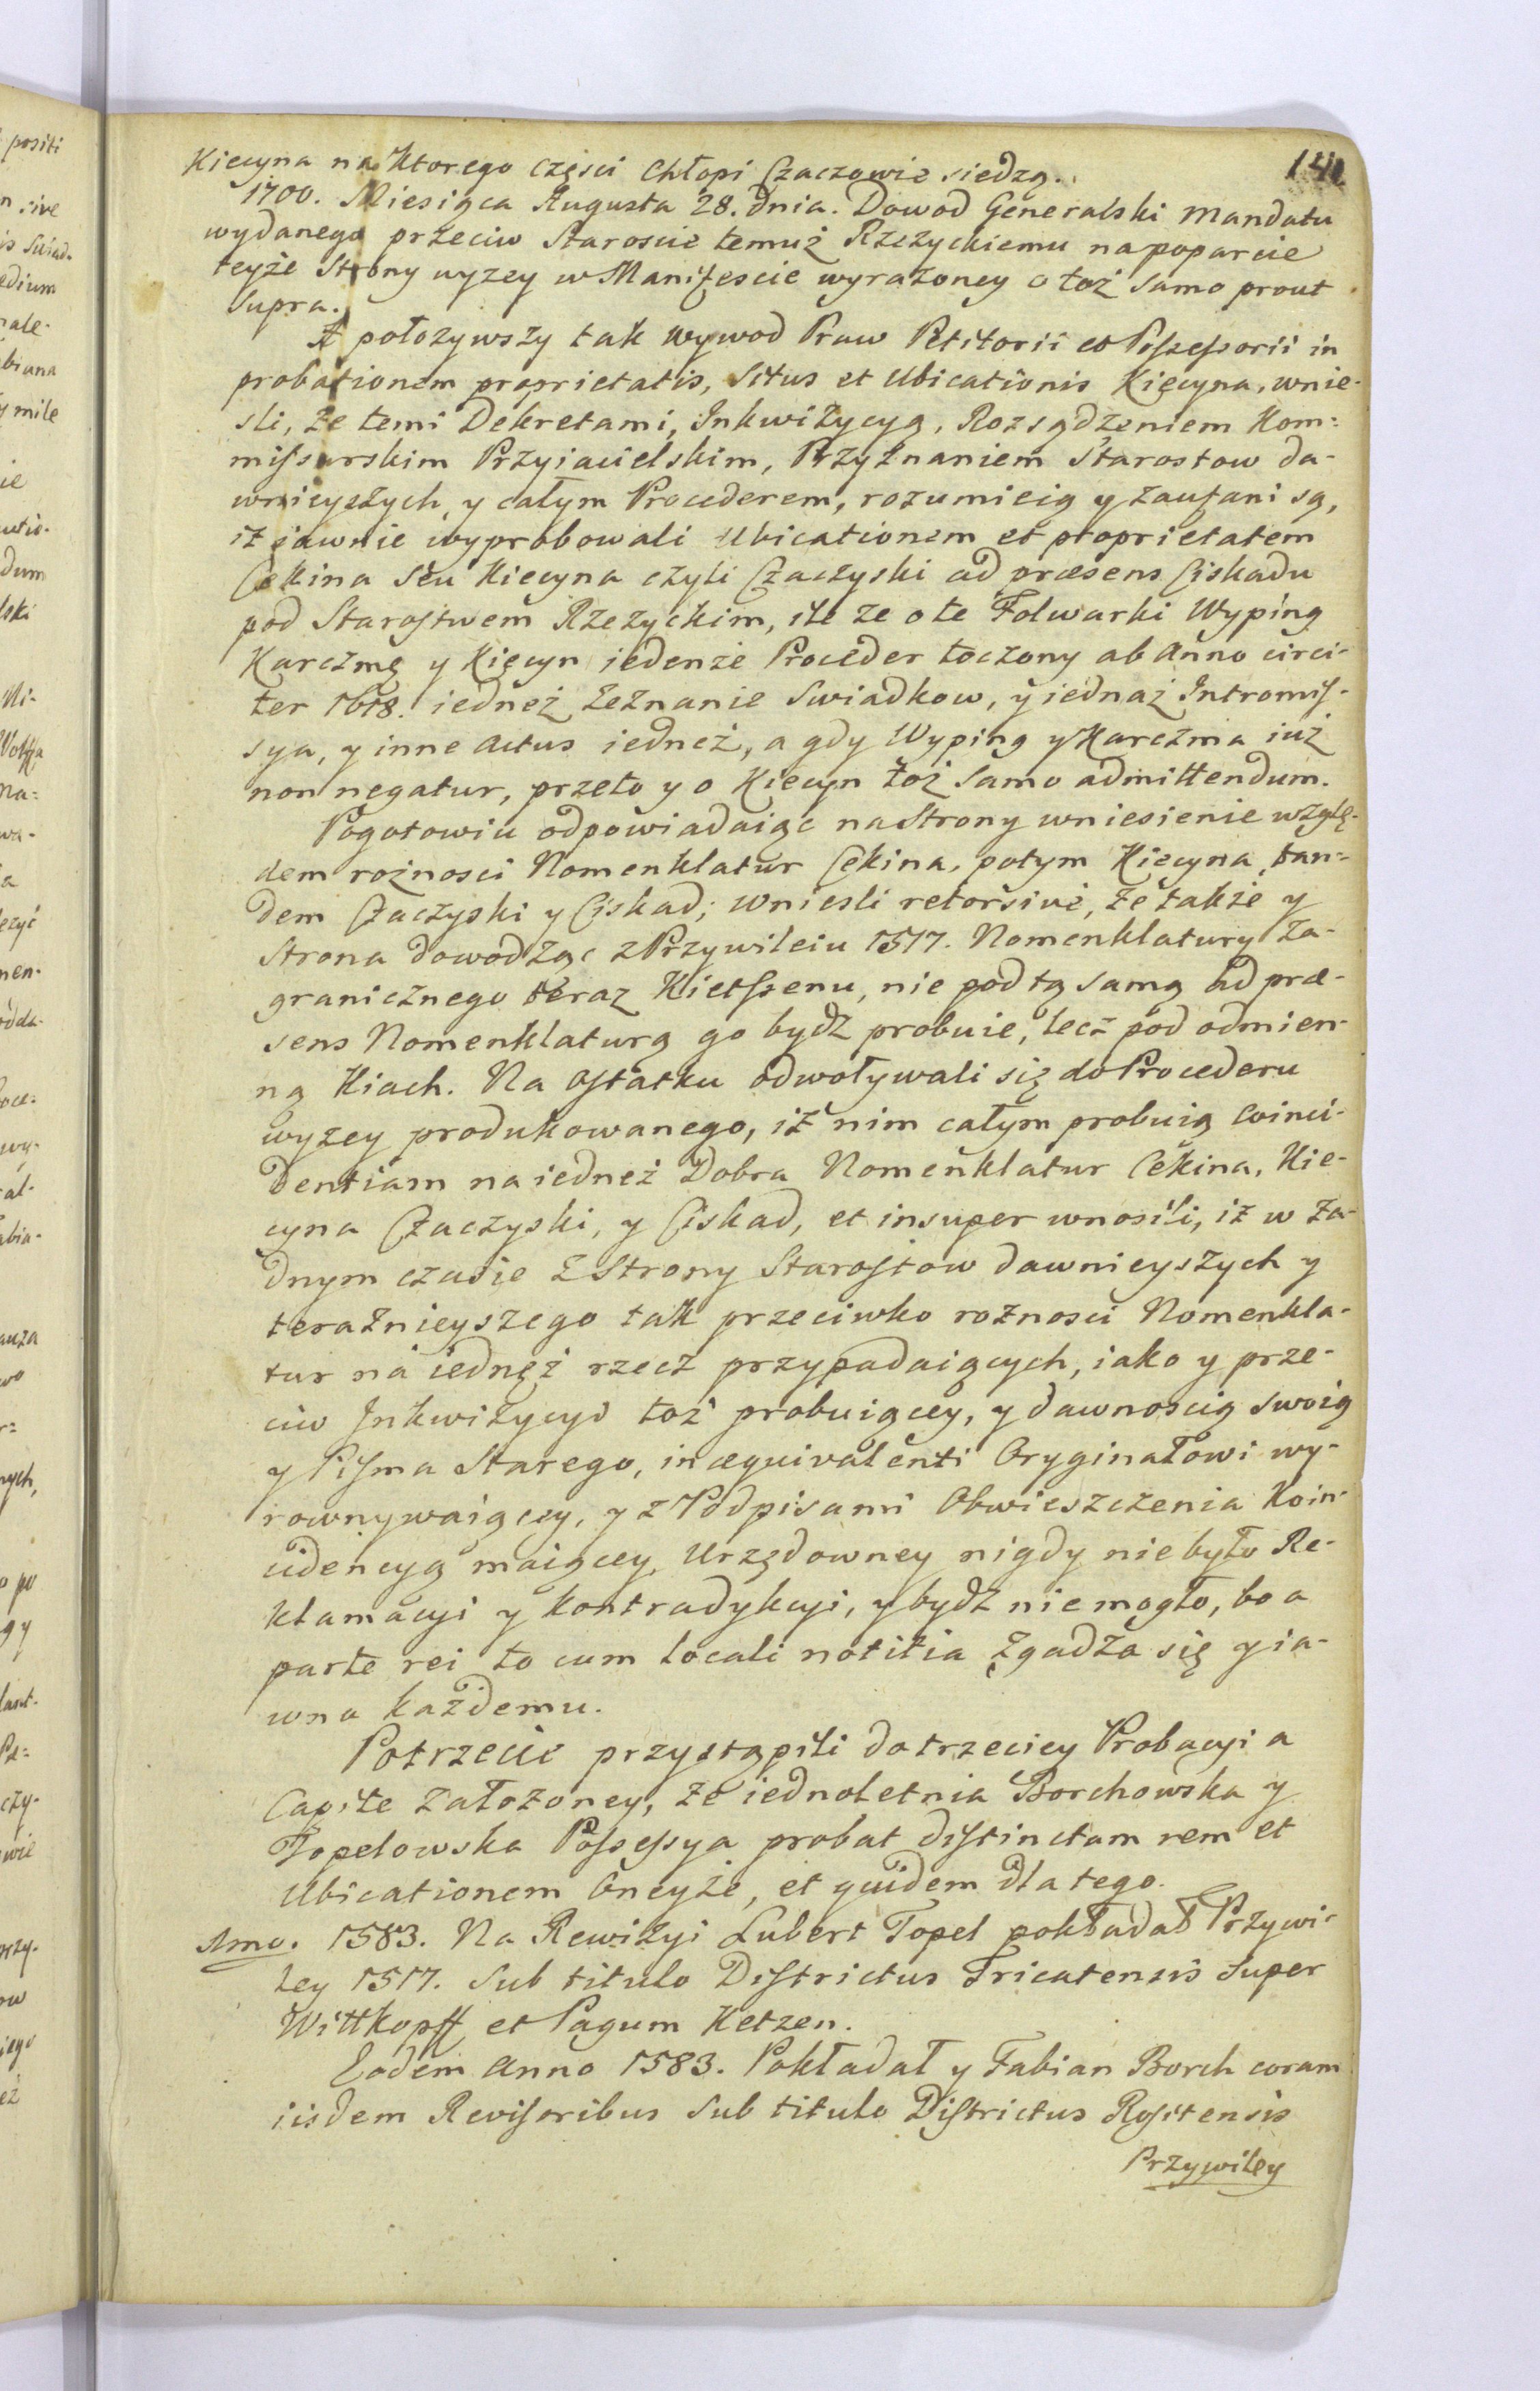 141
Kiecyna na ktorego części Chłopi Czaczowie siedzą.
1700. Miesiąca Augusta 28. dnia. Dowod Generalski Mandatu
wydanego przeciw Staroscie temuż Rzeżyckiemu na poparcie
teyże Strony wyzey w Manifescie wyrażoney o toż samo prout
supra.
A położywszy tak wywod Praw Petitorii et Possessorii in
probationem proprietatis, situs et Ubicationis Kięcyna, wnie-
sli, że temi Dekretami, Inkwizycyą, Rozsądzeniem Kom=
missarskim Przyiacielskim, Przyznaniem Starostow da-
wnieyszych, y całym Procederem, rozumieią y zaufani są,
iż iawnie wyprobowali Ubicationem et proprietatem
Cekina seu Kiecyna czyli Czaczyski ad præsens Ciskadu
pod Starostwem Rzezyckim, ile ze o te Folwarki Wyping
Karczmę y Kięcyn iedenże Proceder toczony ab Anno circi-
ter 1618. iedneż Zeznanie Swiadkow, y iednaż Intromis-
sya, y inne Actus iedneż, a gdy Wyping y Karczma iuż
non negatur, przeto y o Kiecyn toż samo admittendum.
Pogotowiu odpowiadaiąc na Strony wniesienie wzglę-
dem rożnosci Nomenklatur Cekina, potym Kiecyna, tan=
dem Czaczyski y Ciskad; wniesli retorsive, że także y
Strona dowodząc z Przywileiu 1517. Nomenklatury za-
granicznego teraz Kietssenu, nie pod tą samą ad præ-
sens Nomenklaturą go bydz probuie, lecz pod odmien-
ną Kiach. Na ostatku odwoływali się do Procederu
wyzey produkowanego, iż nim całym probuią coinci-
dentiam na iedneż Dobra Nomenklatur Cekina, Kie-
cyna Czaczyski, y Ciskad, et insuper wnosili, iż w ża-
dnym czasie z Strony Starostow dawnieyszych y
teraznieyszego tak przeciwko rożnosci Nomenkla-
tur na iednęż rzecz przypadaiących, iako y prze-
ciw Inkwizycyi toż probuiącey, y dawnoscią swoią
y Pisma Starego, in æquivalenti Oryginałowi wy-
rownywaiącey, y z Podpisami Obwieszczenia Koin-
cidencyą maiącey, Urzędowney nigdy nie było Re-
klamacyi y kontradykcyi, y bydz nie mogło, bo a
parte rei to cum locali notitia zgadza się y ia-
wna każdemu.
Potrzecie przystąpili do trzeciey Probacyi a
Capite założoney, że iednoletnia Borchowska y
Topelowska Possessya probat distinctam rem et
Ubicationem Oneyże, et quidem dla tego.
1mo. 1583. Na Rewizyi Lubert Topel pokładał Przywi-
ley 1517. Sub titulo Districtus Tricatensis super
Wittkopff et Pagum Ketzen.
Eodem Anno 1583. Pokładał y Fabian Borch coram
iisdem Revisoribus Sub titulo Districtus Rositensis
Przywiley